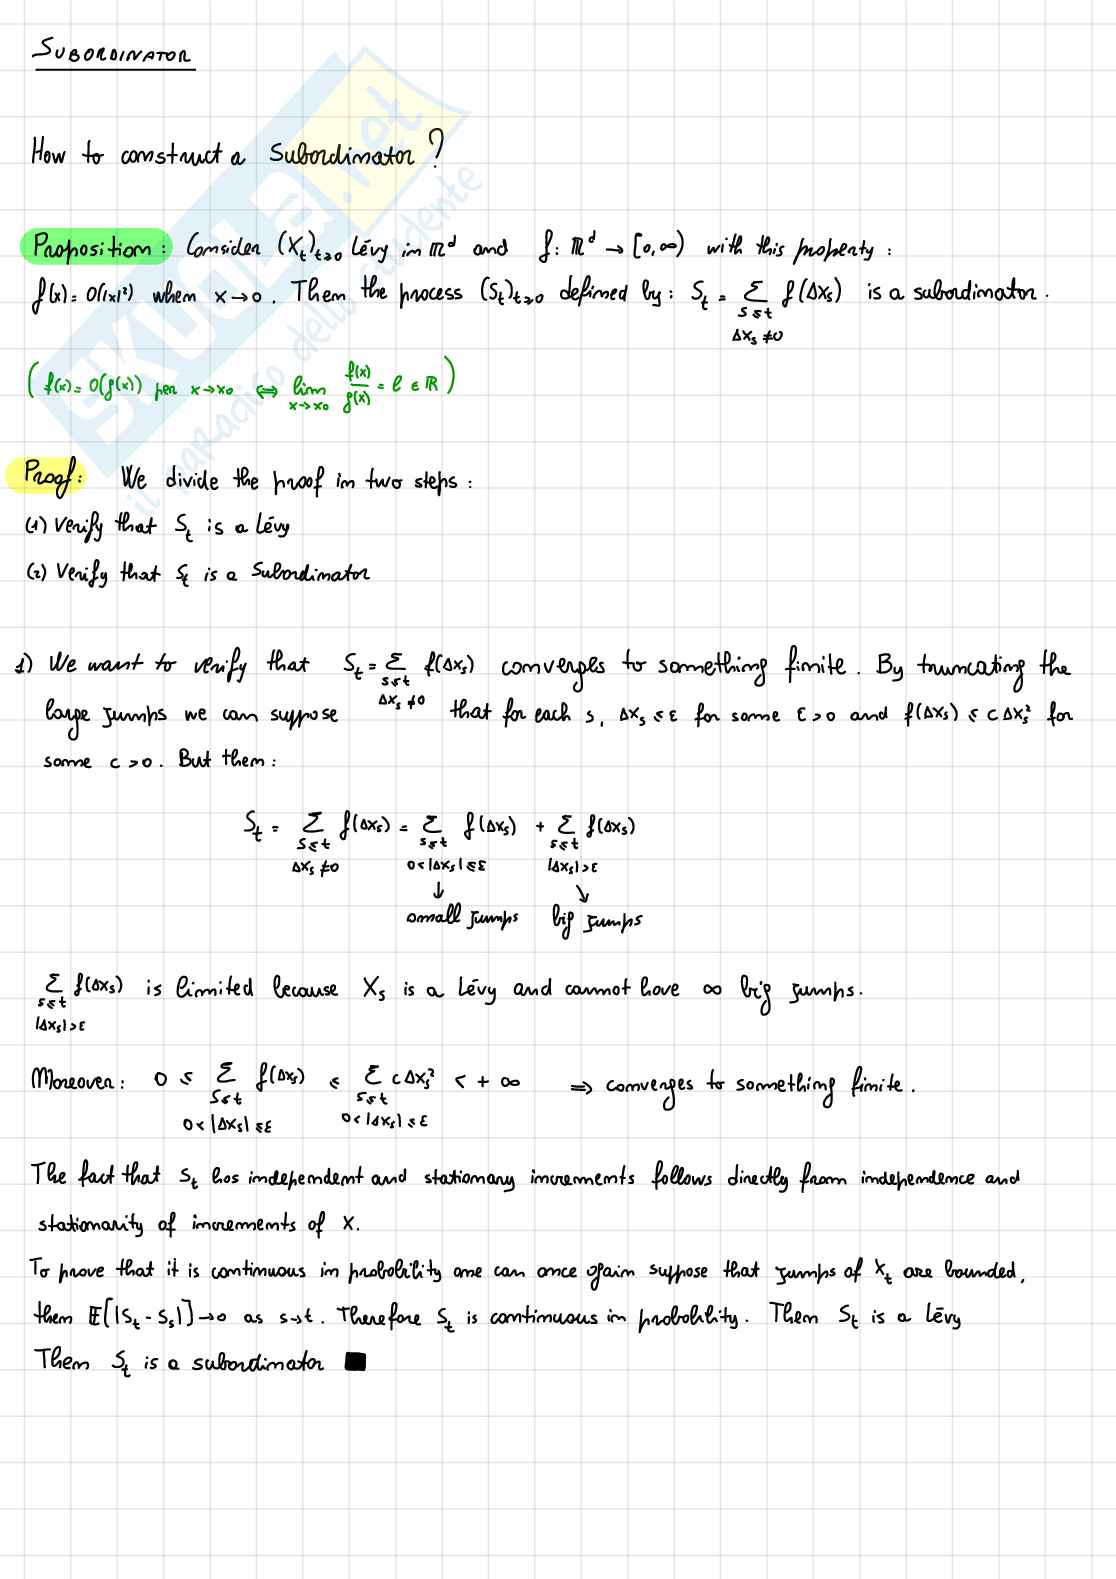 SUBORDINATOR
How to construct a Subordinator ?
Proposition : Consider (X_t)_{t≥0} Lévy in ℝ^d and f : ℝ^d → [0,∞) with this property :
f(x) = O(|x|²) when x→0 . Then the process (S_t)_{t≥0} defined by : S_t = Σ f(ΔX_s) is a subordinator .
s≤t
ΔX_s ≠0
( f(x) = O(g(x)) per x→x0 ⟺ lim_{x→x0} f(x)/g(x) = l ∈ ℝ )
Proof : We divide the proof in two steps :
(1) Verify that S_t is a Lévy
(2) Verify that S_t is a Subordinator
1) We want to verify that S_t = Σ f(ΔX_s) converges to something finite . By truncating the
s≤t
ΔX_s ≠0
large jumps we can suppose that for each s, ΔX_s ≤ ε for some ε>0 and f(ΔX_s) ≤ c ΔX_s² for
some c >0 . But then :
S_t = Σ f(ΔX_s) = Σ f(ΔX_s) + Σ f(ΔX_s)
s≤t s≤t s≤t
ΔX_s ≠0 0<|ΔX_s| ≤ε |ΔX_s|>ε
↓ ↘
small jumps big jumps
Σ f(ΔX_s) is limited because X_s is a Lévy and cannot have ∞ big jumps .
s≤t
|ΔX_s|>ε
Moreover : 0 ≤ Σ f(ΔX_s) ≤ Σ c ΔX_s² < + ∞ ⇒ converges to something finite .
s≤t s≤t
0<|ΔX_s| ≤ε 0<|ΔX_s| ≤ε
The fact that S_t has independent and stationary increments follows directly from independence and
stationarity of increments of X.
To prove that it is continuous in probability one can once again suppose that jumps of X_t are bounded,
then 𝔼[|S_t - S_s|] →0 as s→t . Therefore S_t is continuous in probability . Then S_t is a Lévy
Then S_t is a subordinator ■
SKUOLA.net
il paradiso dello studente